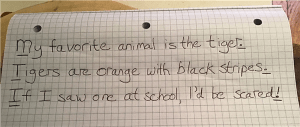 My favorite animal is the tiger.
Tigers are orange with black stripes.
If I saw one at school, I'd be scared!